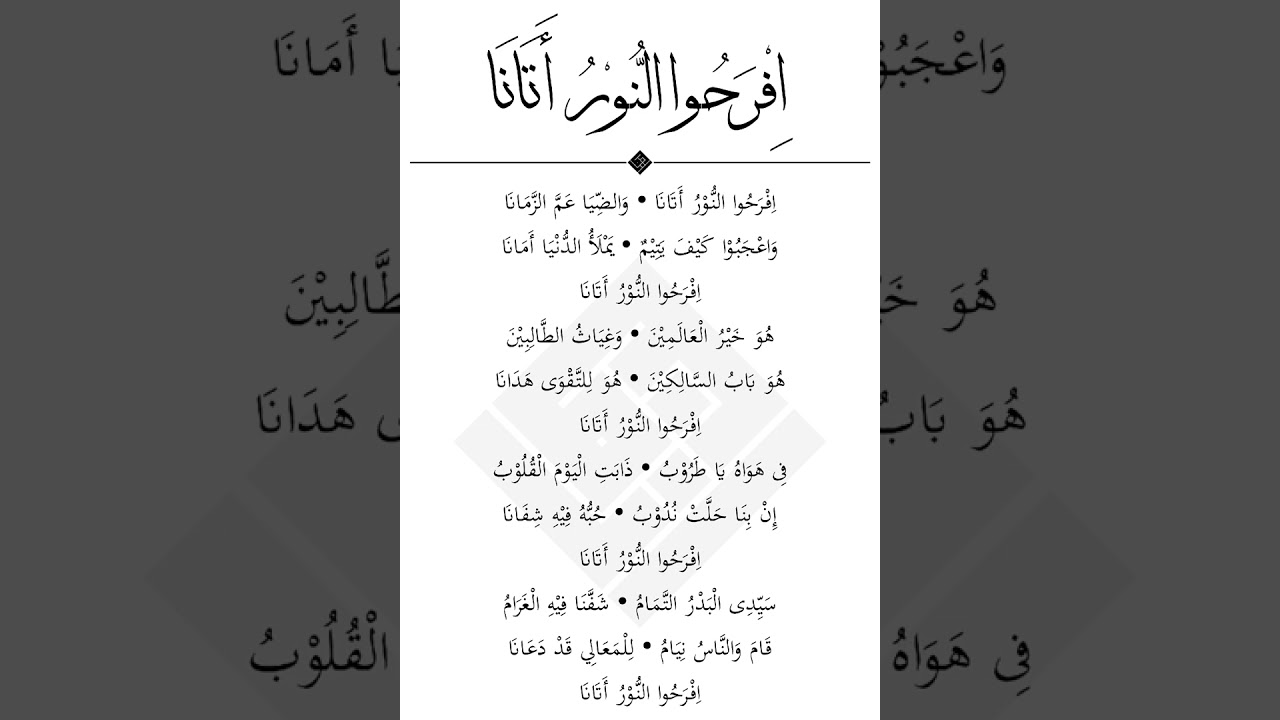 اِفْرَحُوا النُّوْرُ أَتَانَا
اِفْرَحُوا النُّوْرُ أَتَانَا • وَالضِّيَا عَمَّ الزَّمَانَا
وَاعْجَبُوْا كَيْفَ يَتِيْمٌ • يَمْلَأُ الدُّنْيَا أَمَانَا
اِفْرَحُوا النُّوْرُ أَتَانَا
هُوَ خَيْرُ الْعَالَمِيْنَ • وَغِيَاثُ الطَّالِبِيْنَ
هُوَ بَابُ السَّالِكِيْنَ • هُوَ لِلتَّقْوَى هَدَانَا
اِفْرَحُوا النُّوْرُ أَتَانَا
فِى هَوَاهُ يَا طَرُوْبُ • ذَابَتِ الْيَوْمَ الْقُلُوْبُ
إِنْ بِنَا حَلَّتْ نُدُوْبُ • حُبُّهُ فِيْهِ شِفَانَا
اِفْرَحُوا النُّوْرُ أَتَانَا
سَيِّدِى الْبَدْرُ التَّمَامُ • شَفَّنَا فِيْهِ الْغَرَامُ
قَامَ وَالنَّاسُ نِيَامُ • لِلْمَعَالِي قَدْ دَعَانَا
اِفْرَحُوا النُّوْرُ أَتَانَا